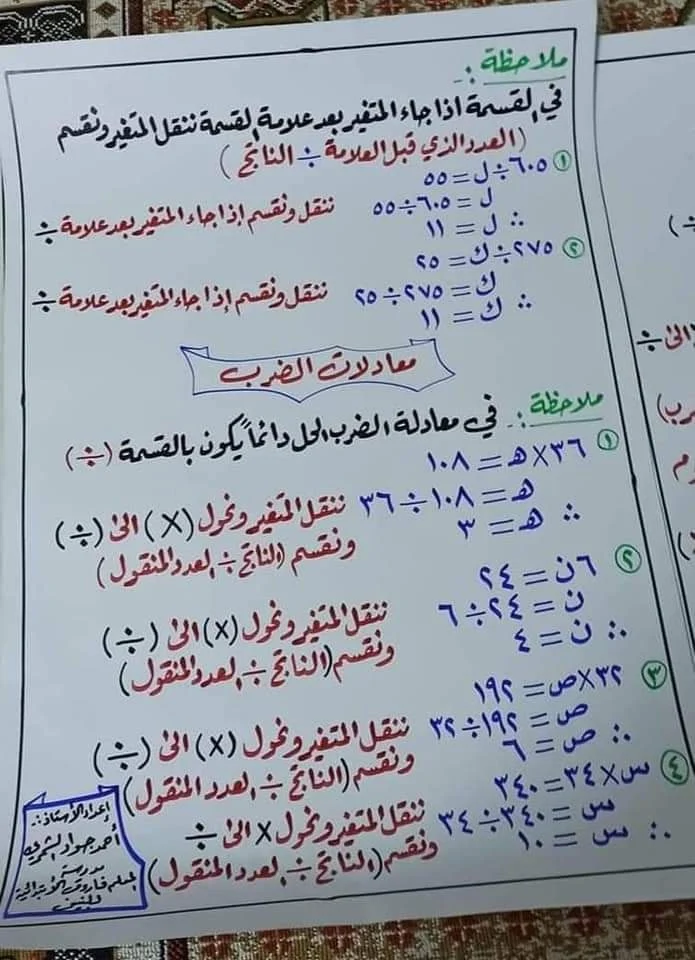 ملاحظة :.
في القسمة اذا جاء المتغير بعد علامة القسمة ننقل المتغير ونقسم
(العدد الذي قبل العلامة ÷ الناتج)
① ٦٠٥ ÷ ل = ٥٥
ل = ٦٠٥ ÷ ٥٥ ننقل ونقسم إذا جاء المتغير بعد علامة ÷
∴ ل = ١١
② ٢٧٥ ÷ ك = ٢٥
ك = ٢٧٥ ÷ ٢٥ ننقل ونقسم إذا جاء المتغير بعد علامة ÷
∴ ك = ١١
معادلات الضرب
ملاحظة :. في معادلة الضرب الحل دائماً يكون بالقسمة (÷)
① ٣٦ × هـ = ١٠٨
هـ = ١٠٨ ÷ ٣٦ ننقل المتغير ونحول (×) الى (÷)
∴ هـ = ٣ ونقسم (الناتج ÷ العدد المنقول)
② ٦ن = ٢٤
ن = ٢٤ ÷ ٦ ننقل المتغير ونحول (×) الى (÷)
∴ ن = ٤ ونقسم (الناتج ÷ العدد المنقول)
③ ٣٢ × ص = ١٩٢
ص = ١٩٢ ÷ ٣٢ ننقل المتغير ونحول (×) الى (÷)
∴ ص = ٦ ونقسم (الناتج ÷ العدد المنقول)
④ س × ٣٤ = ٣٤٠
س = ٣٤٠ ÷ ٣٤ ننقل المتغير ونحول × الى ÷
∴ س = ١٠ ونقسم (الناتج ÷ العدد المنقول)
إعداد الأستاذ :.
أحمد جواد الشمري
مدرسة
مسلم فاروق الأبتدائية
للبنين
÷)
الى ÷
رب)